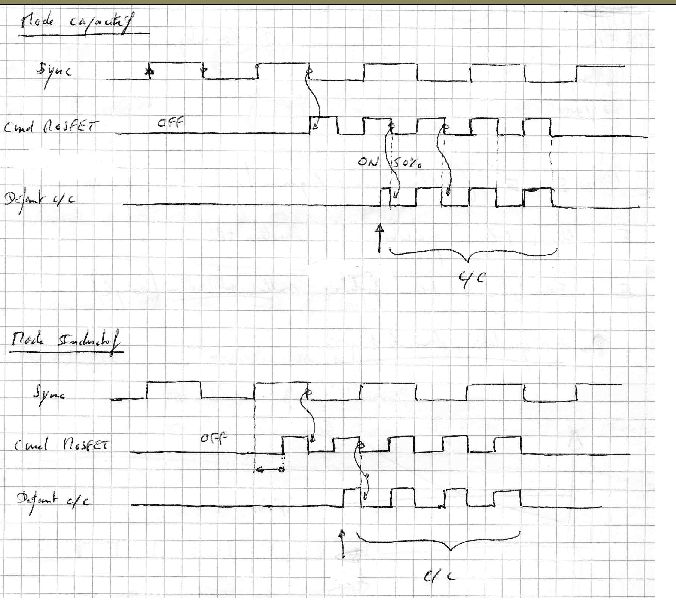 Mode capacitif
Sync
Cmd MOSFET OFF
ON 50%
Défaut c/c
c/c
Mode Inductif
Sync
Cmd MOSFET OFF
Défaut c/c
c/c